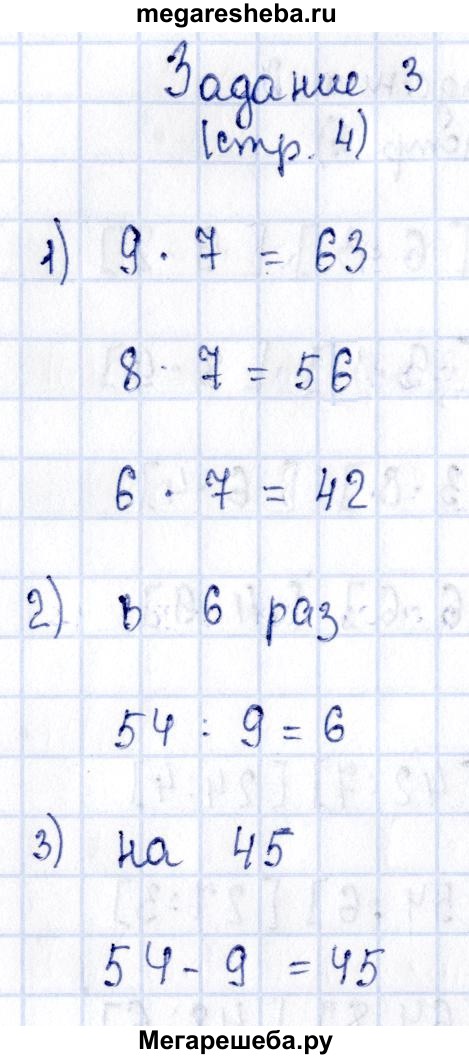 megaresheba.ru
Задание 3
(стр. 4)
1) 9 · 7 = 63
8 · 7 = 56
6 · 7 = 42
2) в 6 раз
54 : 9 = 6
3) на 45
54 - 9 = 45
Мегарешеба.ру